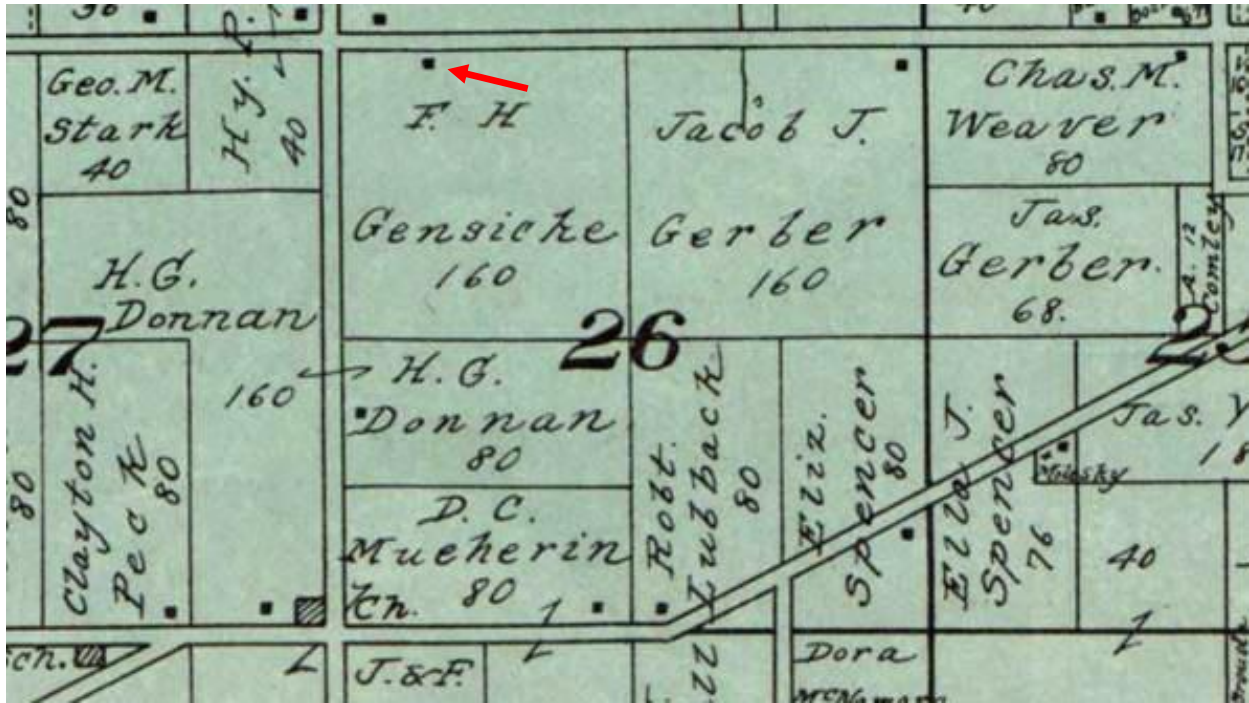 36
40
Geo. M.
Stark
40
Hy. P.
40
F. H
Gensicke
160
Jacob J.
Gerber
160
Chas. M.
Weaver
80
Jas.
Gerber.
68.
A. 12
Comley
80
H. G.
Donnan
27
26
160
H. G.
Donnan
80
Clayton H.
Peck
80
80
D. C.
Mueherin
80
Ch.
Robt.
Lubback
80
Eliz.
Spencer
80
Ella J.
Spencer
76
Jas. Y
18
40
ch.
J. & F.
Dora
McNamara